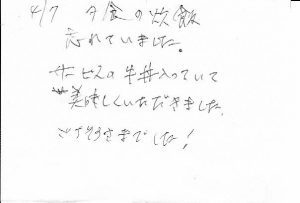 4/7 夕食の炊飯
忘れていました。
サービスの牛丼入っていて
美味しくいただきました
ごちそうさまでした!